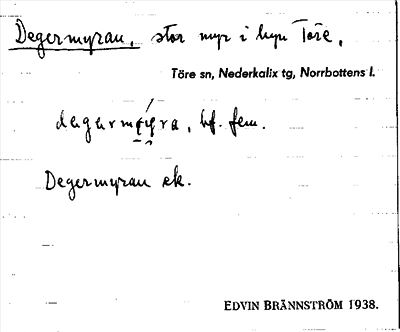 Degermyran, stor myr i byn Töre.
Töre sn, Nederkalix tg, Norrbottens l.
bf. fem.
Degermyran ek.
EDVIN BRÄNNSTRÖM 1938.